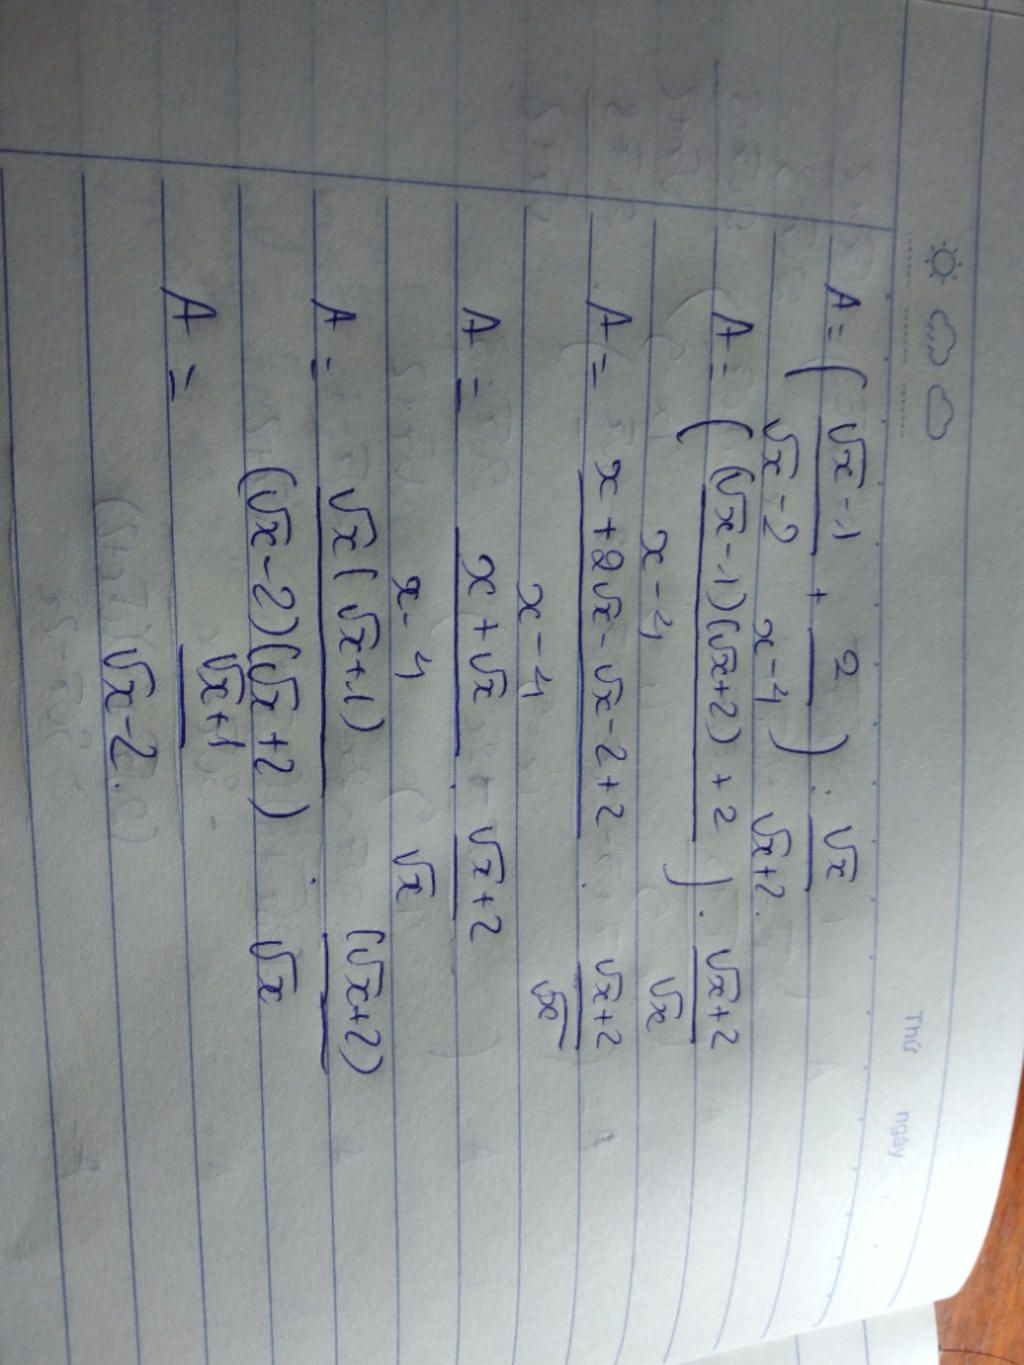 Thứ ngày
A = ( (√x - 1)/(√x - 2) + 2/(x - 4) ) . √x/(√x + 2).
A = ( ((√x - 1)(√x + 2) + 2)/(x - 4) ) . (√x + 2)/√x
A = (x + 2√x - √x - 2 + 2)/(x - 4) . (√x + 2)/√x
A = (x + √x)/(x - 4) . (√x + 2)/√x
A = (√x(√x + 1))/((√x - 2)(√x + 2)) . (√x + 2)/√x
A = (√x + 1)/(√x - 2).